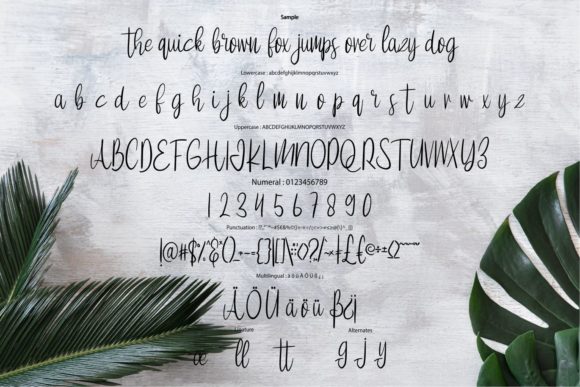 Sample
the quick brown fox jumps over lazy dog
Lowercase : abcdefghijklmnopqrstuvwxyz
a b c d e f g h i j k l m n o p q r s t u v w x y z
Uppercase : ABCDEFGHIJKLMNOPQRSTUVWXYZ
ABCDEFGHIJKLMNOPQRSTUVWXYZ
Numeral : 0123456789
1 2 3 4 5 6 7 8 9 0
Punctuation :
Multilingual : ä ö ü Ä Ö Ü ß ¡ ¿
ÄÖÜ äöü ß
Alternates
ll tt g j y